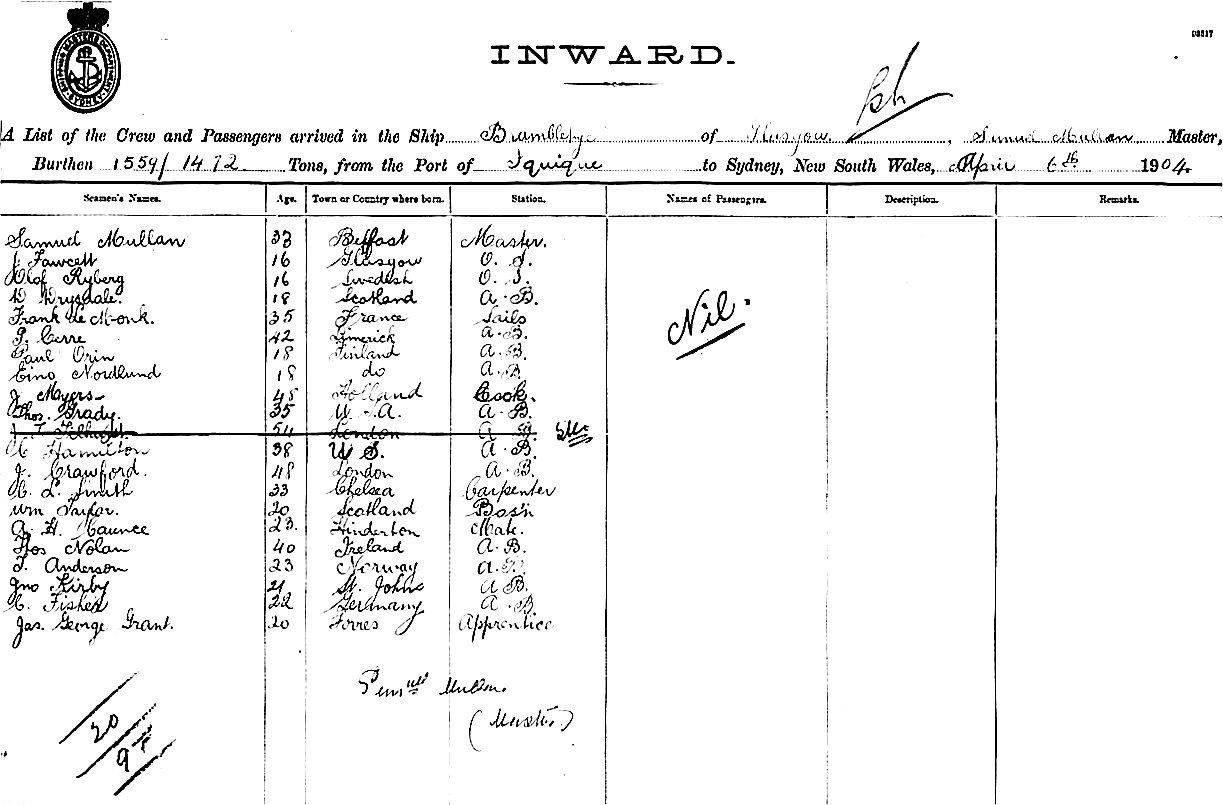 D3517
INWARD.
A List of the Crew and Passengers arrived in the Ship Brambletye of Glasgow, Samuel Mullan Master,
Burthen 1559/1472 Tons, from the Port of Iquique to Sydney, New South Wales, April 6th 1904.
Seamen's Names. Age. Town or Country where born. Station. Names of Passengers. Description. Remarks.
Samuel Mullan 33 Belfast Master.
J Fawcett 16 Glasgow O. S.
Olof Ryberg 16 Swedish O. S.
D Drysdale. 18 Scotland A. B.
Frank Le Monk. 35 France Sails
P. Cerre 42 Limerick A. B.
Paul Orin 18 Finland A. B.
Eino Nordlund 18 do A. B.
J Myers 48 Holland Cook.
Thos. Grady. 35 U. S. A. A. B.
J. T. 54 London A. B.
Hamilton 38 U. S. A. B.
J. Crawford. 48 London A. B.
C. L. Smith 33 Chelsea Carpenter
Wm Taylor. 20 Scotland Bos'n
A. H. Maunce 23. Hinderton Mate.
Thos Nolan 40 Ireland A. B.
T. Anderson 23 Norway A. B.
Jno Kirby 21 St. Johns A B.
C. Fisher 22 Germany A. B.
Jas. George Grant. 20 Forres Apprentice
Nil.
Samuel Mullan
(Master)
20